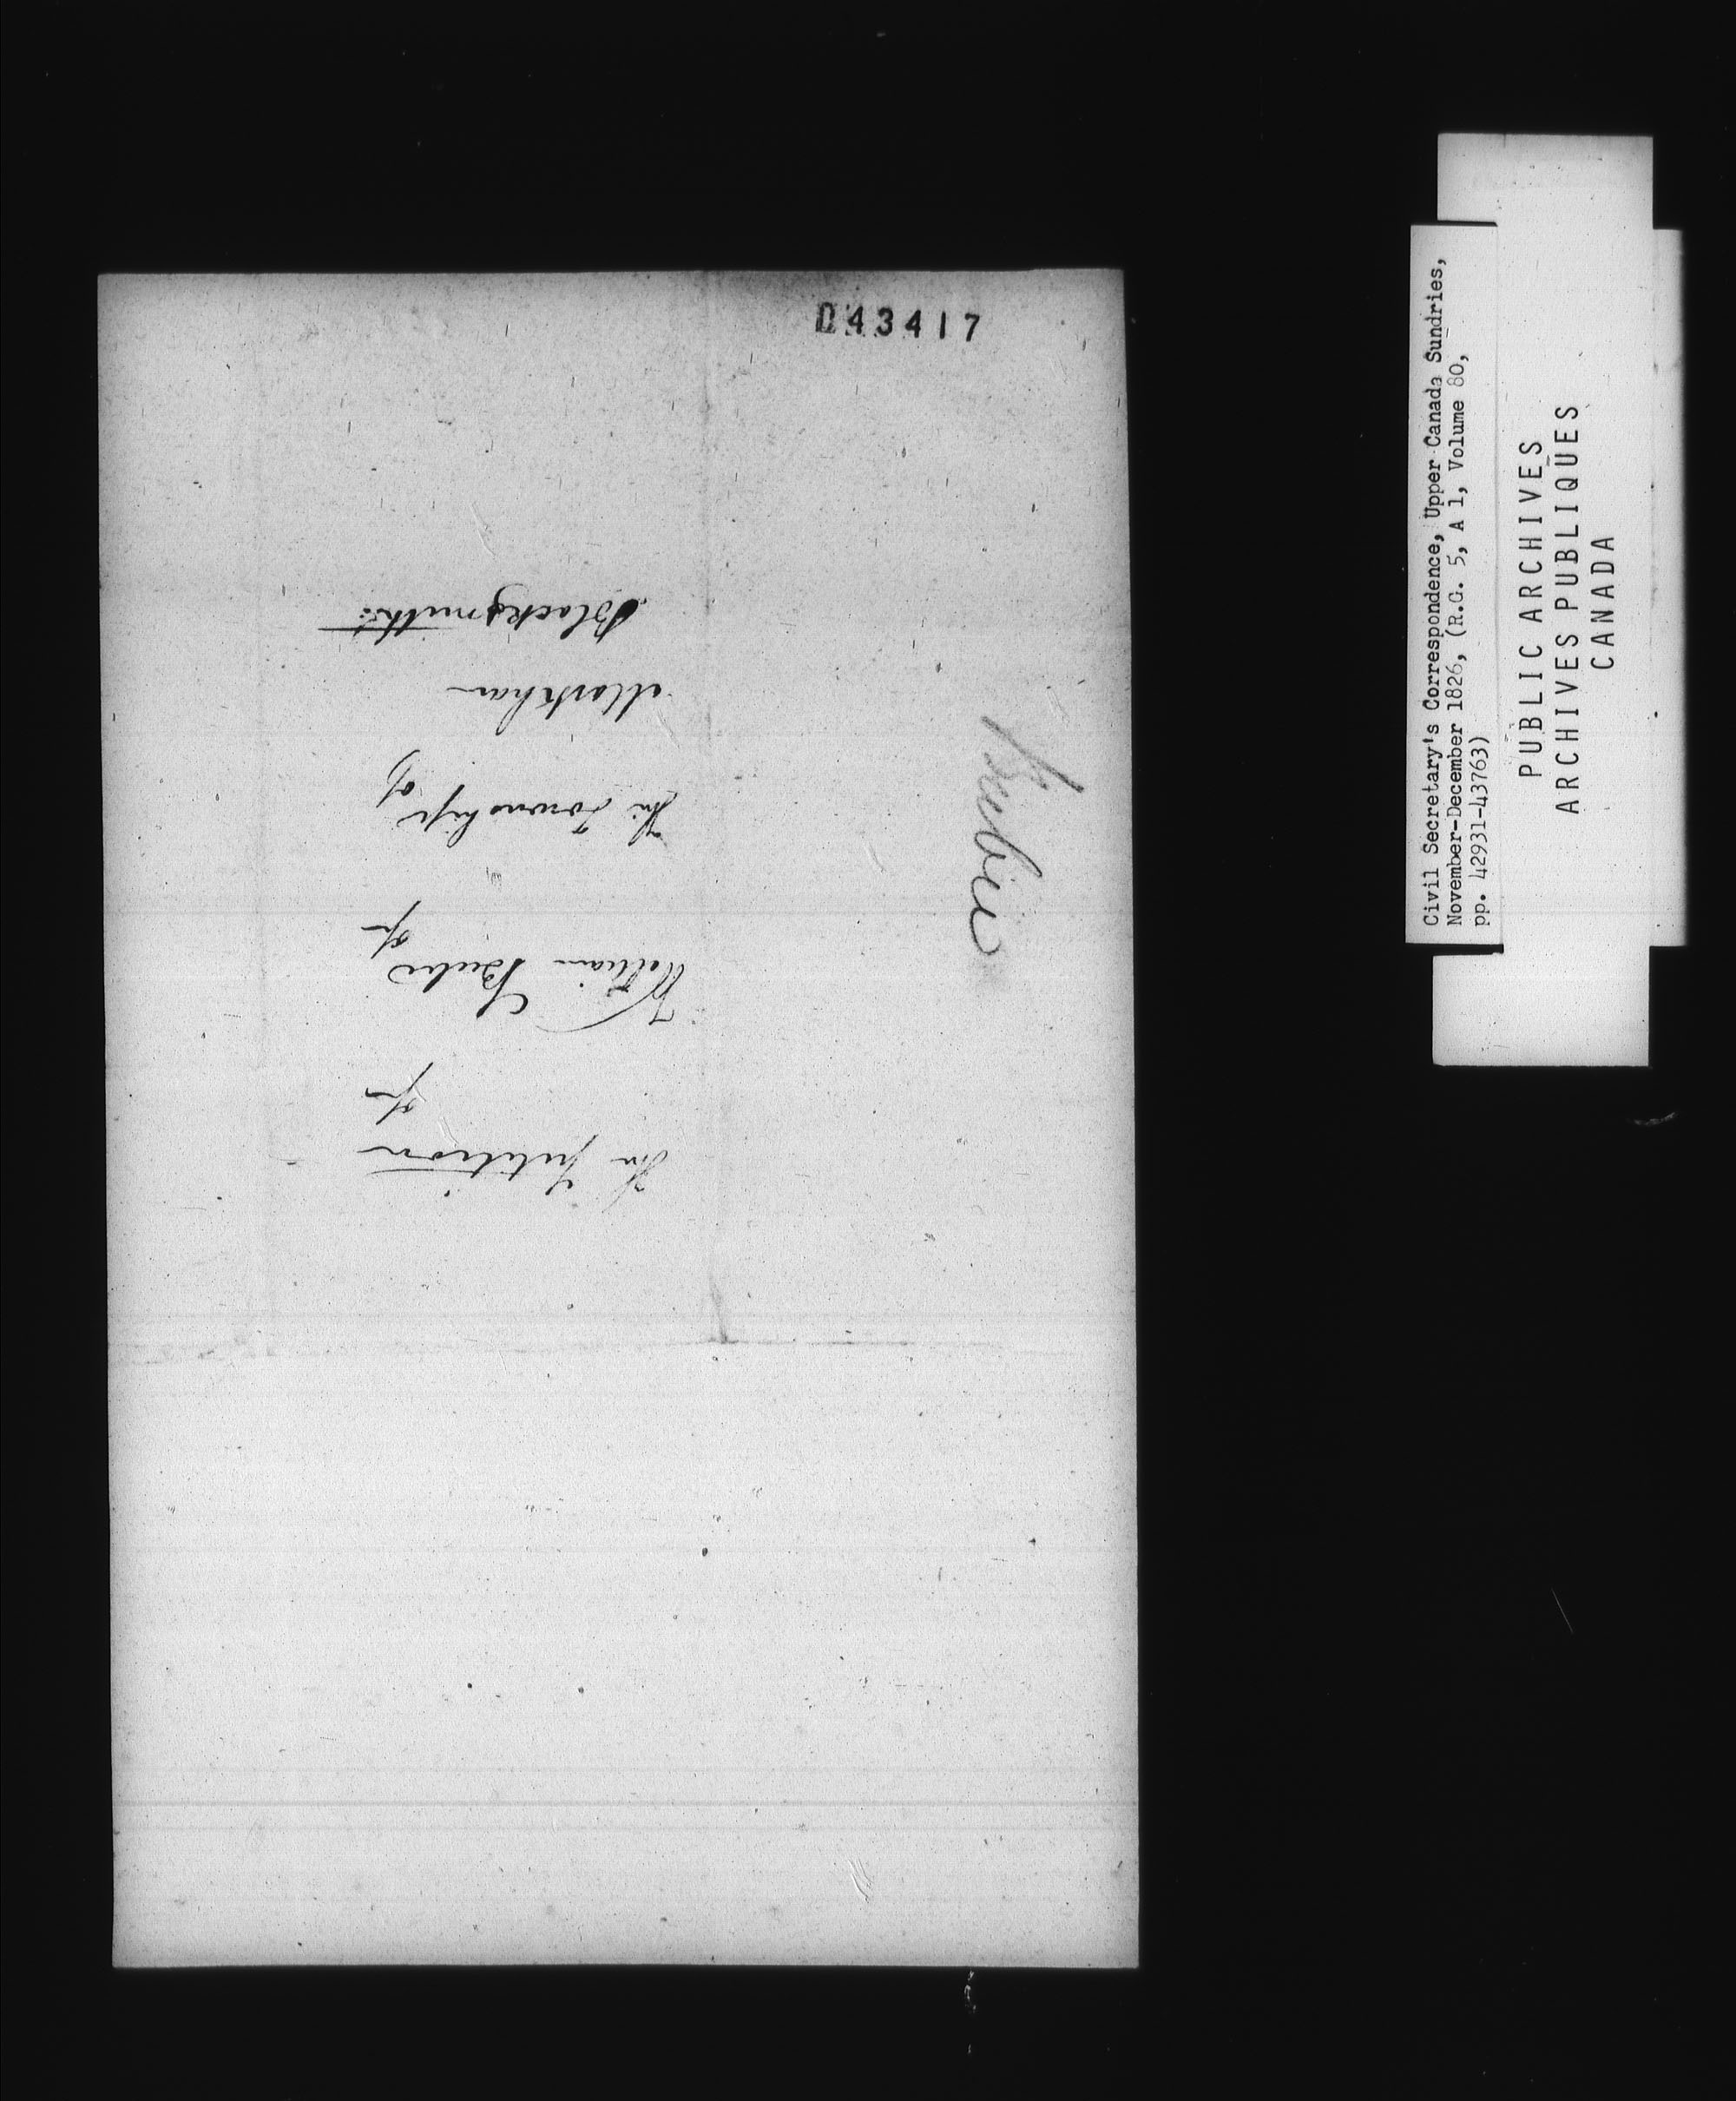 043417
The petition
of
William Beebe
of
The Township
of
Markham
Blacksmith:
Beebie
Civil Secretary's Correspondence, Upper Canada Sundries,
November-December 1826, (R.G. 5, A 1, Volume 80,
pp. 42931-43763)
PUBLIC ARCHIVES
ARCHIVES PUBLIQUES
CANADA